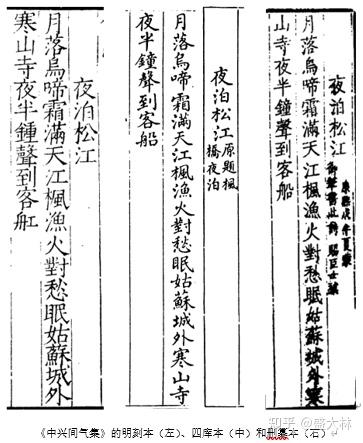 夜泊松江
康熙戊午夏蒙
御筆書此詩 賜臣士禎
月落烏啼霜滿天江楓漁火對愁眠姑蘇城外寒
山寺夜半鐘聲到客船
夜泊松江原題楓
橋夜泊
月落烏啼霜滿天江楓漁火對愁眠姑蘇城外寒山寺
夜半鐘聲到客船
夜泊松江
月落烏啼霜滿天江楓漁火對愁眠姑蘇城外
寒山寺夜半鍾聲到客舡
《中兴间气集》的明刻本（左）、四库本（中）和删纂本（右）
知乎 @盛大林